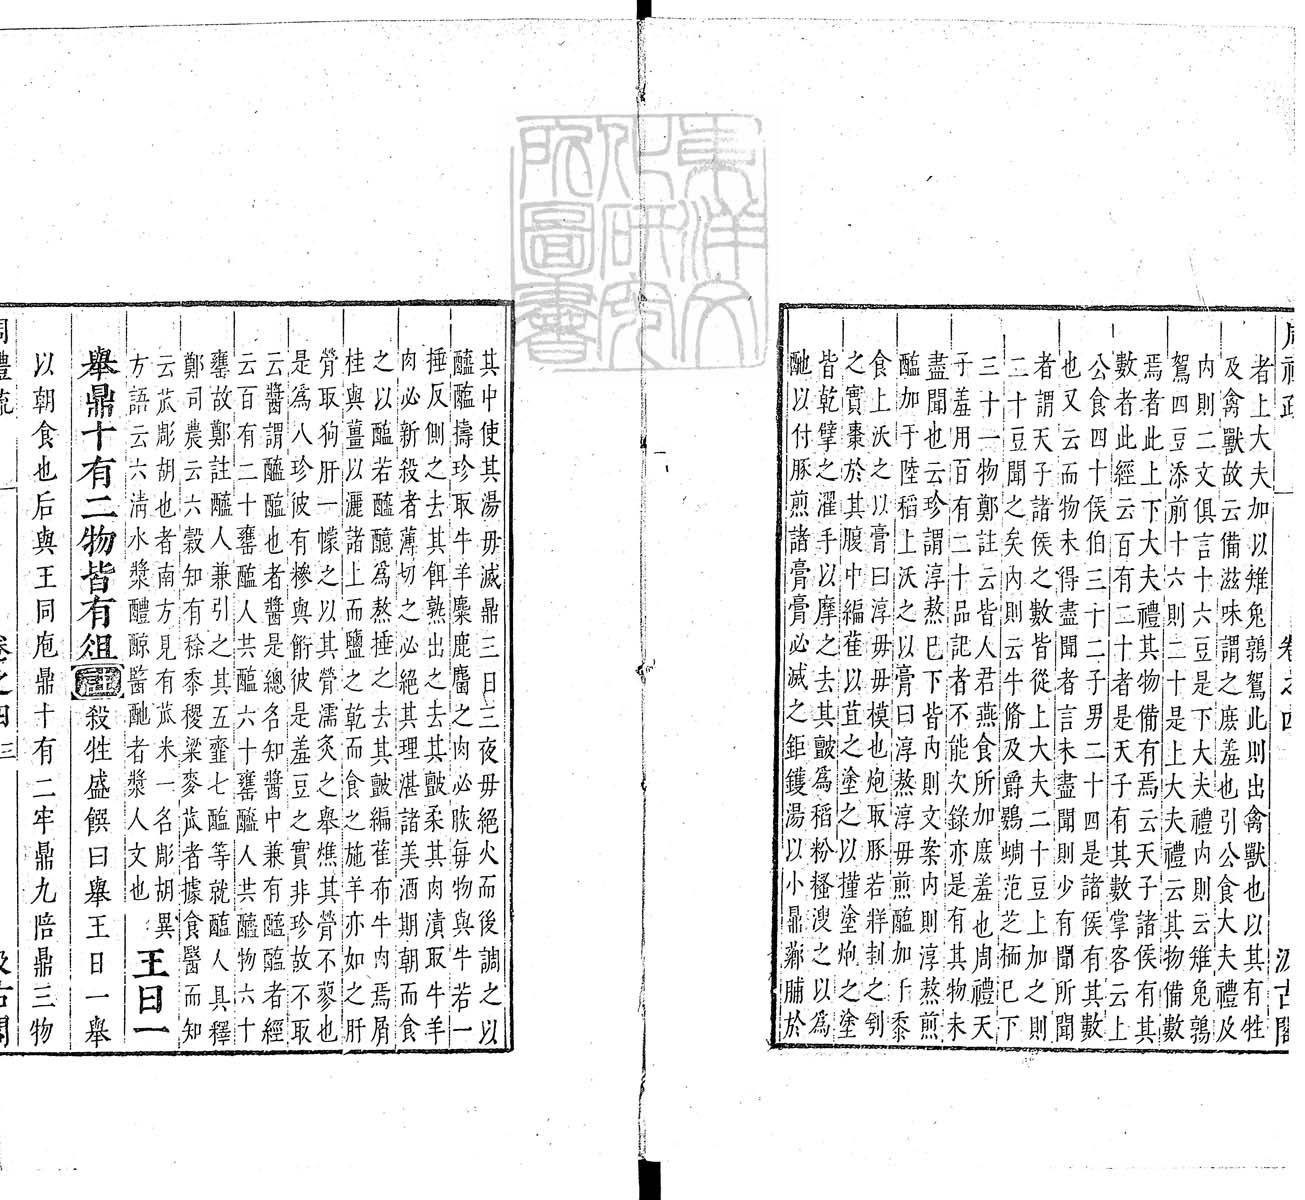 周禮疏 卷之四 汲古閣
者上大夫加以雉兔鶉鴽此則出禽獸也以其有牲
及禽獸故云備滋味謂之庶羞也引公食大夫禮及
内則二文俱言十六豆是下大夫禮内則云雉兔鶉
鴽四豆添前十六則二十是上大夫禮云其物備數
焉者此上下大夫禮其物備有焉云天子諸侯有其
數者此經云百有二十者是天子有其數掌客云上
公食四十侯伯三十二子男二十四是諸侯有其數
也又云而物未得盡聞者言未盡聞則少有聞所聞
者謂天子諸侯之數皆從上大夫二十豆上加之則
二十豆聞之矣内則云牛脩及爵鷃蜩范芝栭巳下
三十一物鄭註云皆人君燕食所加庶羞也周禮天
子羞用百有二十品記者不能次錄亦是有其物未
盡聞也云珍謂淳熬巳下皆内則文案内則淳熬煎
醢加于陸稻上沃之以膏曰淳熬淳毋煎醢加于黍
食上沃之以膏曰淳毋毋模也炮取豚若牂刲之刳
之實棗於其腹中編萑以苴之塗之以墐塗炮之塗
皆乾擘之濯手以摩之去其皽爲稻粉糔溲之以爲
酏以付豚煎諸膏膏必滅之鉅鑊湯以小鼎薌脯於
其中使其湯毋滅鼎三日三夜毋絕火而後調之以
醯醢擣珍取牛羊麋鹿麕之肉必脄每物與牛若一
捶反側之去其餌熟出之去其皽柔其肉漬取牛羊
肉必新殺者薄切之必絕其理湛諸美酒期朝而食
之以醢若醯醷爲熬捶之去其皽編萑布牛肉焉屑
桂與薑以灑諸上而鹽之乾而食之施羊亦如之肝
膋取狗肝一幪之以其膋濡炙之舉燋其膋不蓼也
是爲八珍彼有糝與䬳彼是羞豆之實非珍故不取
云醬謂醯醢也者醬是總名知醬中兼有醯醢者經
云百有二十罋醢人共醢六十罋醯人共醯物六十
罋故鄭註醯人兼引之其五齏七醢等就醢人具釋
鄭司農云六穀知有稌黍稷粱麥苽者據食醫而知
云苽彫胡也者南方見有苽米一名彫胡異
方語云六清水漿醴醇醫酏者漿人文也 王日一
舉鼎十有二物皆有俎 註 殺牲盛饌曰舉王日一舉
以朝食也后與王同庖鼎十有二牢鼎九陪鼎三物
周禮疏 卷之四 三 汲古閣
東洋文化研究所圖書